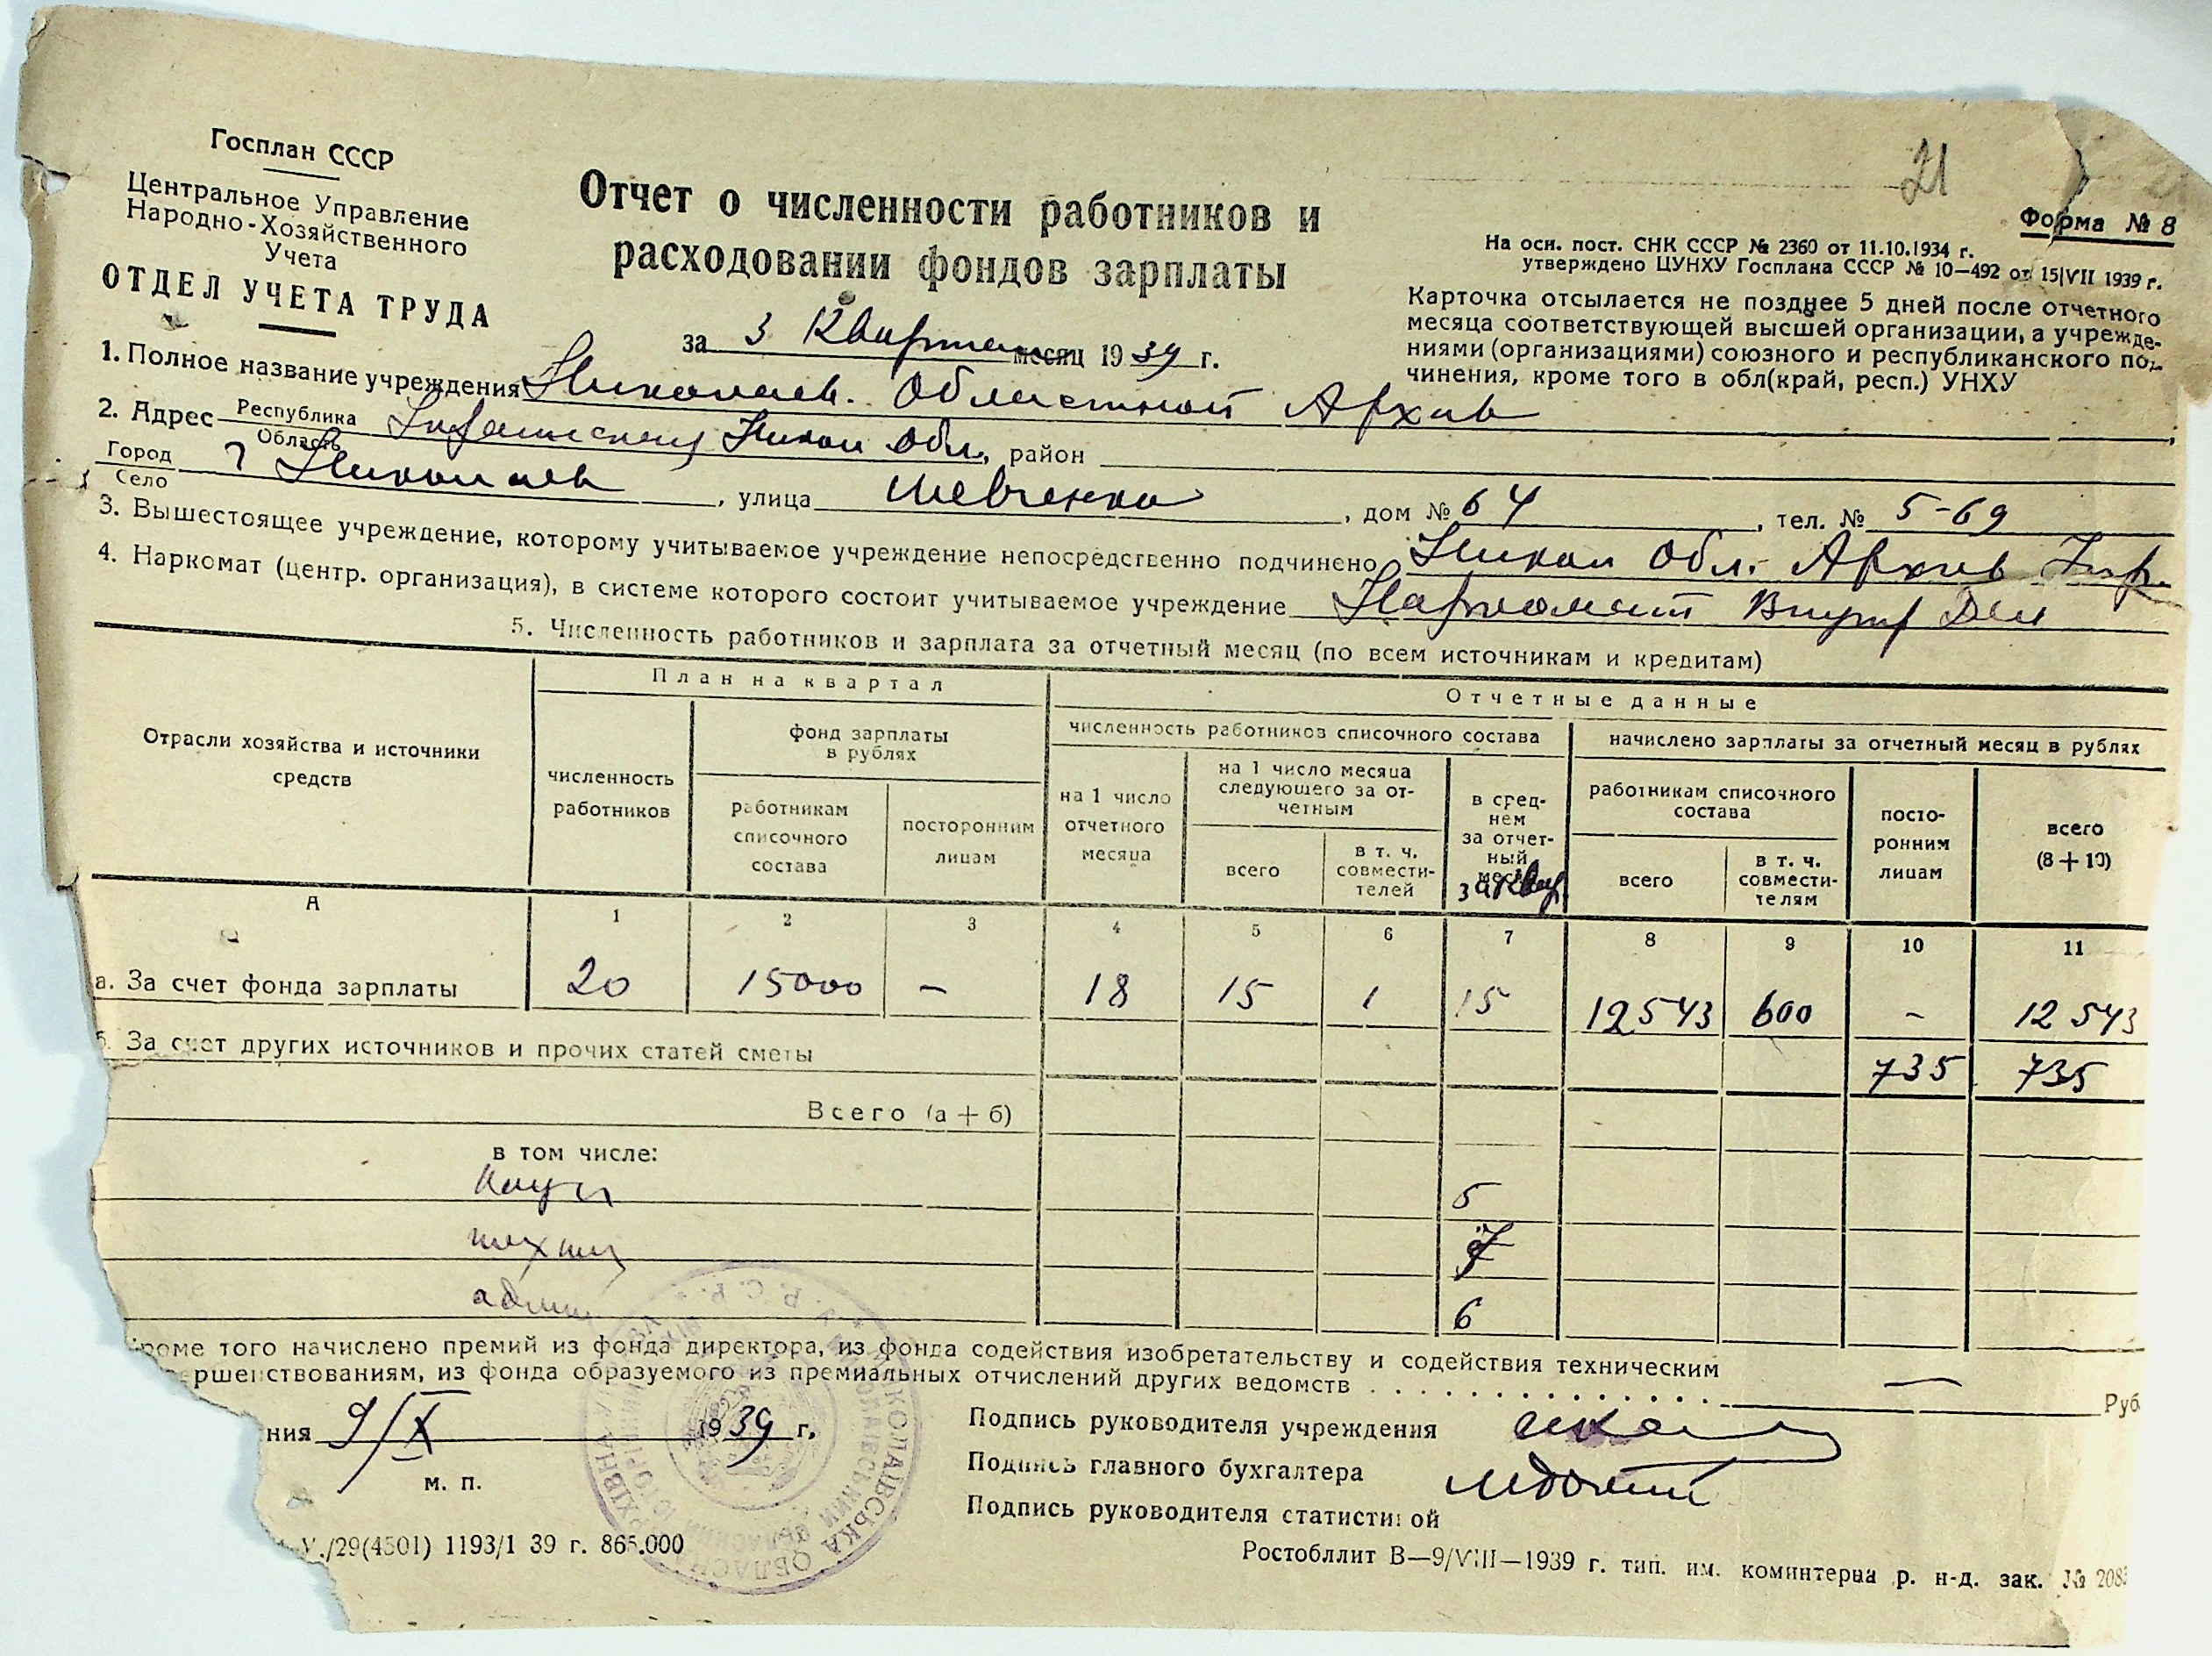 21
Госплан СССР
Центральное Управление
Народно-Хозяйственного
Учета
ОТДЕЛ УЧЕТА ТРУДА
Отчет о численности работников и
расходовании фондов зарплаты
за 3 Квартал месяц 1939 г.
Форма № 8
На осн. пост. СНК СССР № 2360 от 11.10.1934 г.
утверждено ЦУНХУ Госплана СССР № 10—492 от 15|VII 1939 г.
Карточка отсылается не позднее 5 дней после отчетного
месяца соответствующей высшей организации, а учрежде-
ниями (организациями) союзного и республиканского под-
чинения, кроме того в обл(край, респ.) УНХУ
1. Полное название учреждения Николаев. Областной Архив
2. Адрес Республика Область Никол Обл, район
Город Село г Николаев, улица Шевченко, дом № 64, тел. № 5-69
3. Вышестоящее учреждение, которому учитываемое учреждение непосредственно подчинено Никол Обл. Архив
4. Наркомат (центр. организация), в системе которого состоит учитываемое учреждение Наркомат Внутр Дел
5. Численность работников и зарплата за отчетный месяц (по всем источникам и кредитам)
Отрасли хозяйства и источники средств
План на квартал
Отчетные данные
численность работников
фонд зарплаты в рублях
работникам списочного состава
посторонним лицам
численность работников списочного состава
на 1 число отчетного месяца
на 1 число месяца следующего за от-четным
всего
в т. ч. совмести-телей
в сред-нем за отчет-ный месяц
за Квар
начислено зарплаты за отчетный месяц в рублях
работникам списочного состава
всего
в т. ч. совмести-телям
посто-ронним лицам
всего (8+10)
А 1 2 3 4 5 6 7 8 9 10 11
а. За счет фонда зарплаты 20 15000 — 18 15 1 15 12543 600 — 12543
б. За счет других источников и прочих статей сметы 735 735
Всего (а + б)
в том числе:
научн 5
технич
админ 6
кроме того начислено премий из фонда директора, из фонда содействия изобретательству и содействия техническим
ершенствованиям, из фонда образуемого из премиальных отчислений других ведомств — Руб.
ния 9/X 1939 г.
м. п.
Подпись руководителя учреждения
Подпись главного бухгалтера
Подпись руководителя статистикой
У./29(4501) 1193/1 39 г. 865.000
Ростобллит В—9/VIII—1939 г. тип. им. коминтерна р. н-д. зак. № 208